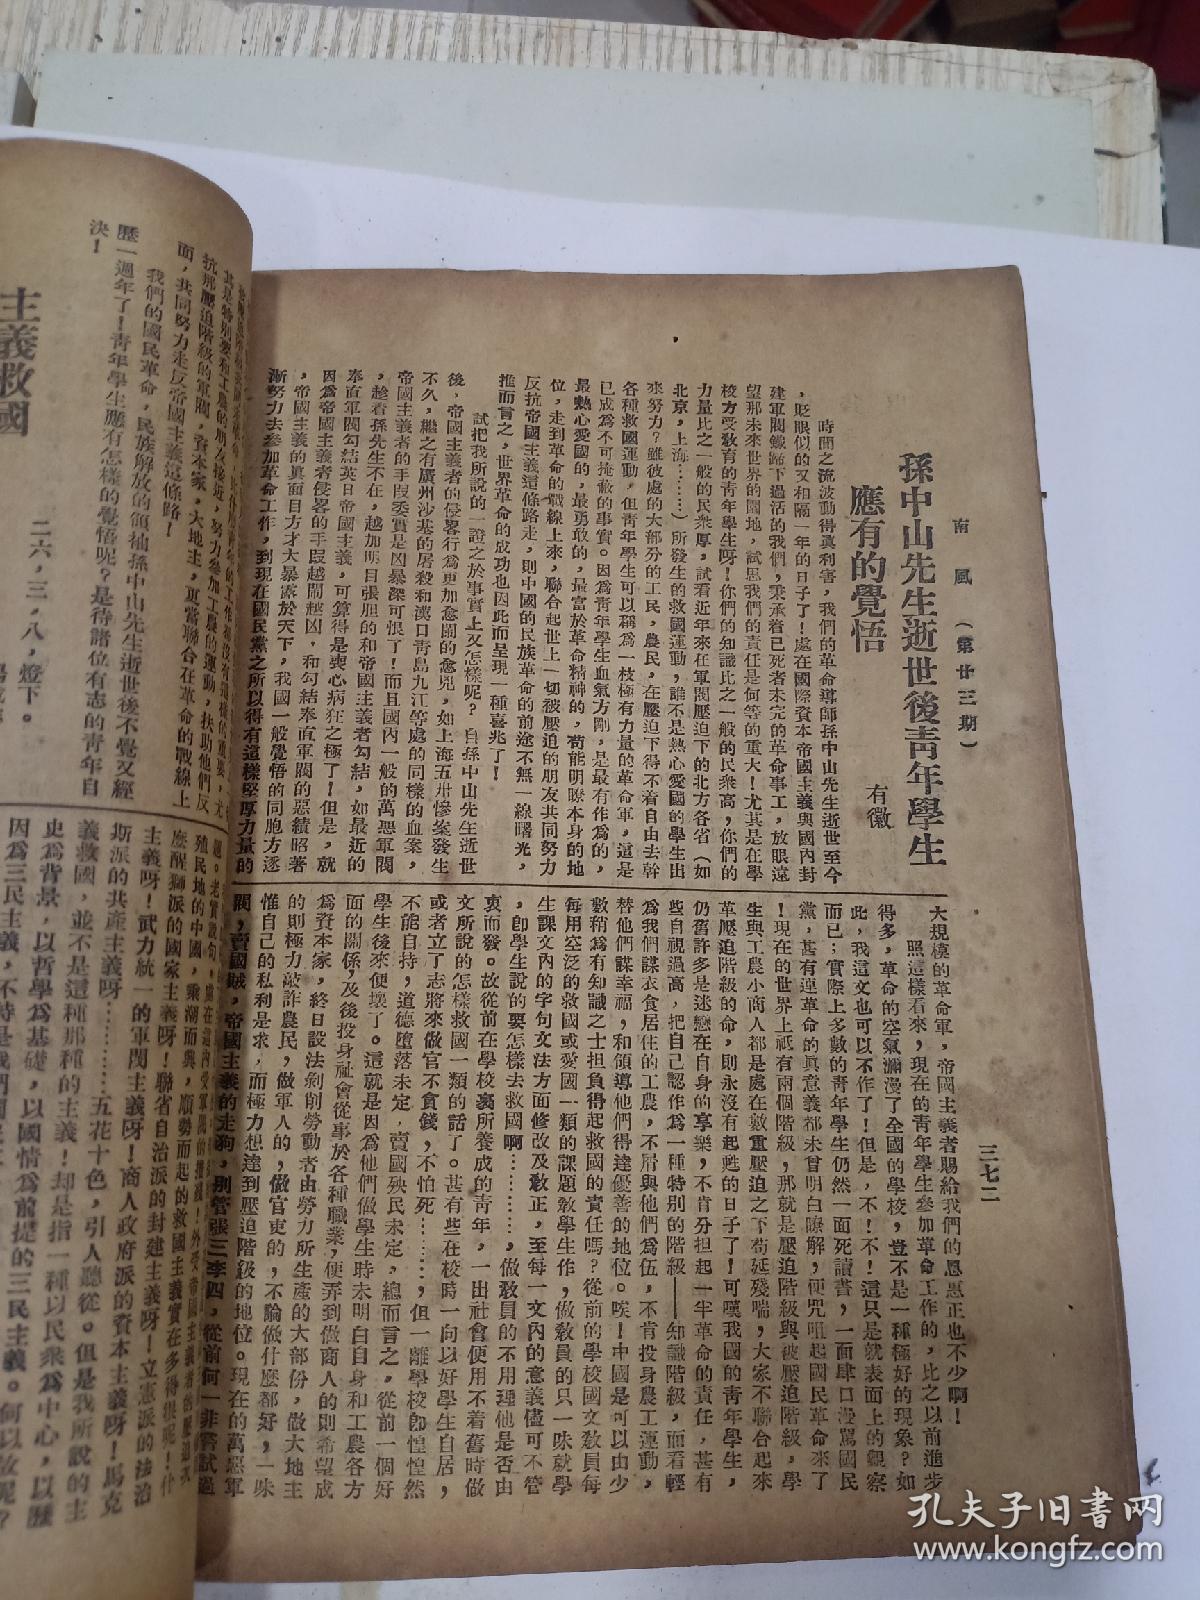 南風（第廿三期）
三七二
孫中山先生逝世後靑年學生
應有的覺悟
有徽
時間之流波動得眞利害，我們的革命導師孫中山先生逝世至今
，貶眼似的又相隔一年的日子了！處在國際資本帝國主義與國內封
建軍閥鐵蹄下過活的我們，秉承着已死者未完的革命事工，放眼遠
望那未來世界的園地，試思我們的責任是何等的重大！尤其是在學
校方受敎育的靑年學生呀！你們的知識比之一般的民衆高，你們的
力量比之一般的民衆厚，試看近年來在軍閥壓迫下的北方各省（如
北京，上海………）所發生的救國運動，誰不是熱心愛國的學生出
來努力？雖彼處的大部分的工民，農民，在壓迫下得不着自由去幹
各種救國運動，但靑年學生可以稱爲一枝極有力量的革命軍，這是
已成爲不可掩蔽的事實。因爲靑年學生血氣方剛，是最有作爲的，
最熱心愛國的，最勇敢的，最富於革命精神的，苟能明瞭本身的地
位，走到革命的戰線上來，聯合起世上一切被壓迫的朋友共同努力
反抗帝國主義這條路走，則中國的民族革命的前途不無一線曙光，
推而言之，世界革命的成功也因此而呈現一種喜兆了！
試把我所說的一證之於事實上又怎樣呢？自孫中山先生逝世
後，帝國主義者的侵畧行爲更加愈鬧的愈兇，如上海五卅慘案發生
不久，繼之有廣州沙基的屠殺和漢口靑島九江等處的同樣的血案，
帝國主義者的手段委實是凶暴深可恨了！而且國內一般的萬惡軍閥
，趁着孫先生不在，越加明目張胆的和帝國主義者勾結，如最近的
奉直軍閥勾結英日帝國主義，可算得是喪心病狂之極了！但是，就
因爲帝國主義者侵畧的手段越鬧越凶，和勾結奉直軍閥的惡績昭著
，帝國主義的眞面目方才大暴露於天下，我國一般覺悟的同胞方逐
漸努力去參加革命工作，到現在國民黨之所以得有這樣堅厚力量的
大規模的革命軍，帝國主義者賜給我們的恩惠正也不少啊！
照這樣看來，現在的靑年學生參加革命工作的，比之以前進步
得多，革命的空氣瀰漫了全國的學校，豈不是一種極好的現象？如
此，我這文也可以不作了！但是，不！不！這只是就表面上的觀察
而已；實際上多數的靑年學生仍然一面死讀書，一面肆口漫罵國民
黨，甚有連革命的眞意義都未曾明白瞭解，便咒咀起國民革命來了
！現在的世界上祇有兩個階級，那就是壓迫階級與被壓迫階級，學
生與工農小商人都是處在數重壓迫之下苟延殘喘，大家不聯合起來
革壓迫階級的命，則永沒有起甦的日子了！可嘆我國的靑年學生，
仍舊許多是迷戀在自身的享樂，不肯分担起一半革命的責任，甚有
些自視過高，把自己認作爲一種特別的階級——知識階級，而看輕
爲我們謀衣食居住的工農，不屑與他們爲伍，不肯投身農工運動，
替他們謀幸福，和領導他們得達優善的地位。唉！中國是可以由少
數稍爲有知識之士担負得起救國的責任嗎？從前的學校國文敎員每
每用空泛的救國或愛國一類的課題敎學生作，做敎員的只一味就學
生課文內的字句文法方面修改及敎正，至每一文內的意義儘可不管
，卽學生說的要怎樣去救國啊…………，做敎員的不用理他是否由
衷而發。故從前在學校裏所養成的靑年，一出社會便用不着舊時做
文所說的怎樣救國一類的話了。甚有些在校時一向以好學生自居，
或者立了志將來做官不貪錢，不怕死………，但一離學校卽惶惶然
不能自持，道德墮落未定，賣國殃民未定，總而言之，從前一個好
學生後來便壞了。這就是因爲他們做學生時未明白自身和工農各方
面的關係，及後投身社會從事於各種職業，便弄到做商人的則希望成
爲資本家，終日設法剝削勞動者由勞力所生產的大部份，做大地主
的則極力敲詐農民，做軍人的，做官吏的，不論做什麼都好，一味
惟自己的私利是求，而極力想達到壓迫階級的地位。現在的萬惡軍
閥，賣國賊，帝國主義的走狗，別管張三李四，從前何一非嘗試過
其是特別要和工農的朋友接近，努力參加工農的運動，扶助他們反
抗那壓迫階級的軍閥，資本家，大地主，更當聯合在革命的戰線上
面，共同努力走反帝國主義這條路！
我們的國民革命，民族解放的領袖孫中山先生逝世後不覺又經
歷一週年了！靑年學生應有怎樣的覺悟呢？是待諸位有志的靑年自
決！
二六，三，八，燈下。
主義救國
殖民地的中國，乘潮而興，順勢而起的救國主義實在多得很呢！什
麽醒獅派的國家主義呀！聯省自治派的封建主義呀！立憲派的法治
主義呀！武力統一的軍閥主義呀！商人政府派的資本主義呀！馬克
斯派的共產主義呀…………五花十色，引人聽從。但是我所說的主
義救國，並不是這種那種的主義！却是指一種以民衆爲中心，以歷
史爲背景，以哲學爲基礎，以國情爲前提的三民主義。何以故呢？
孔夫子旧书网
www.kongfz.com